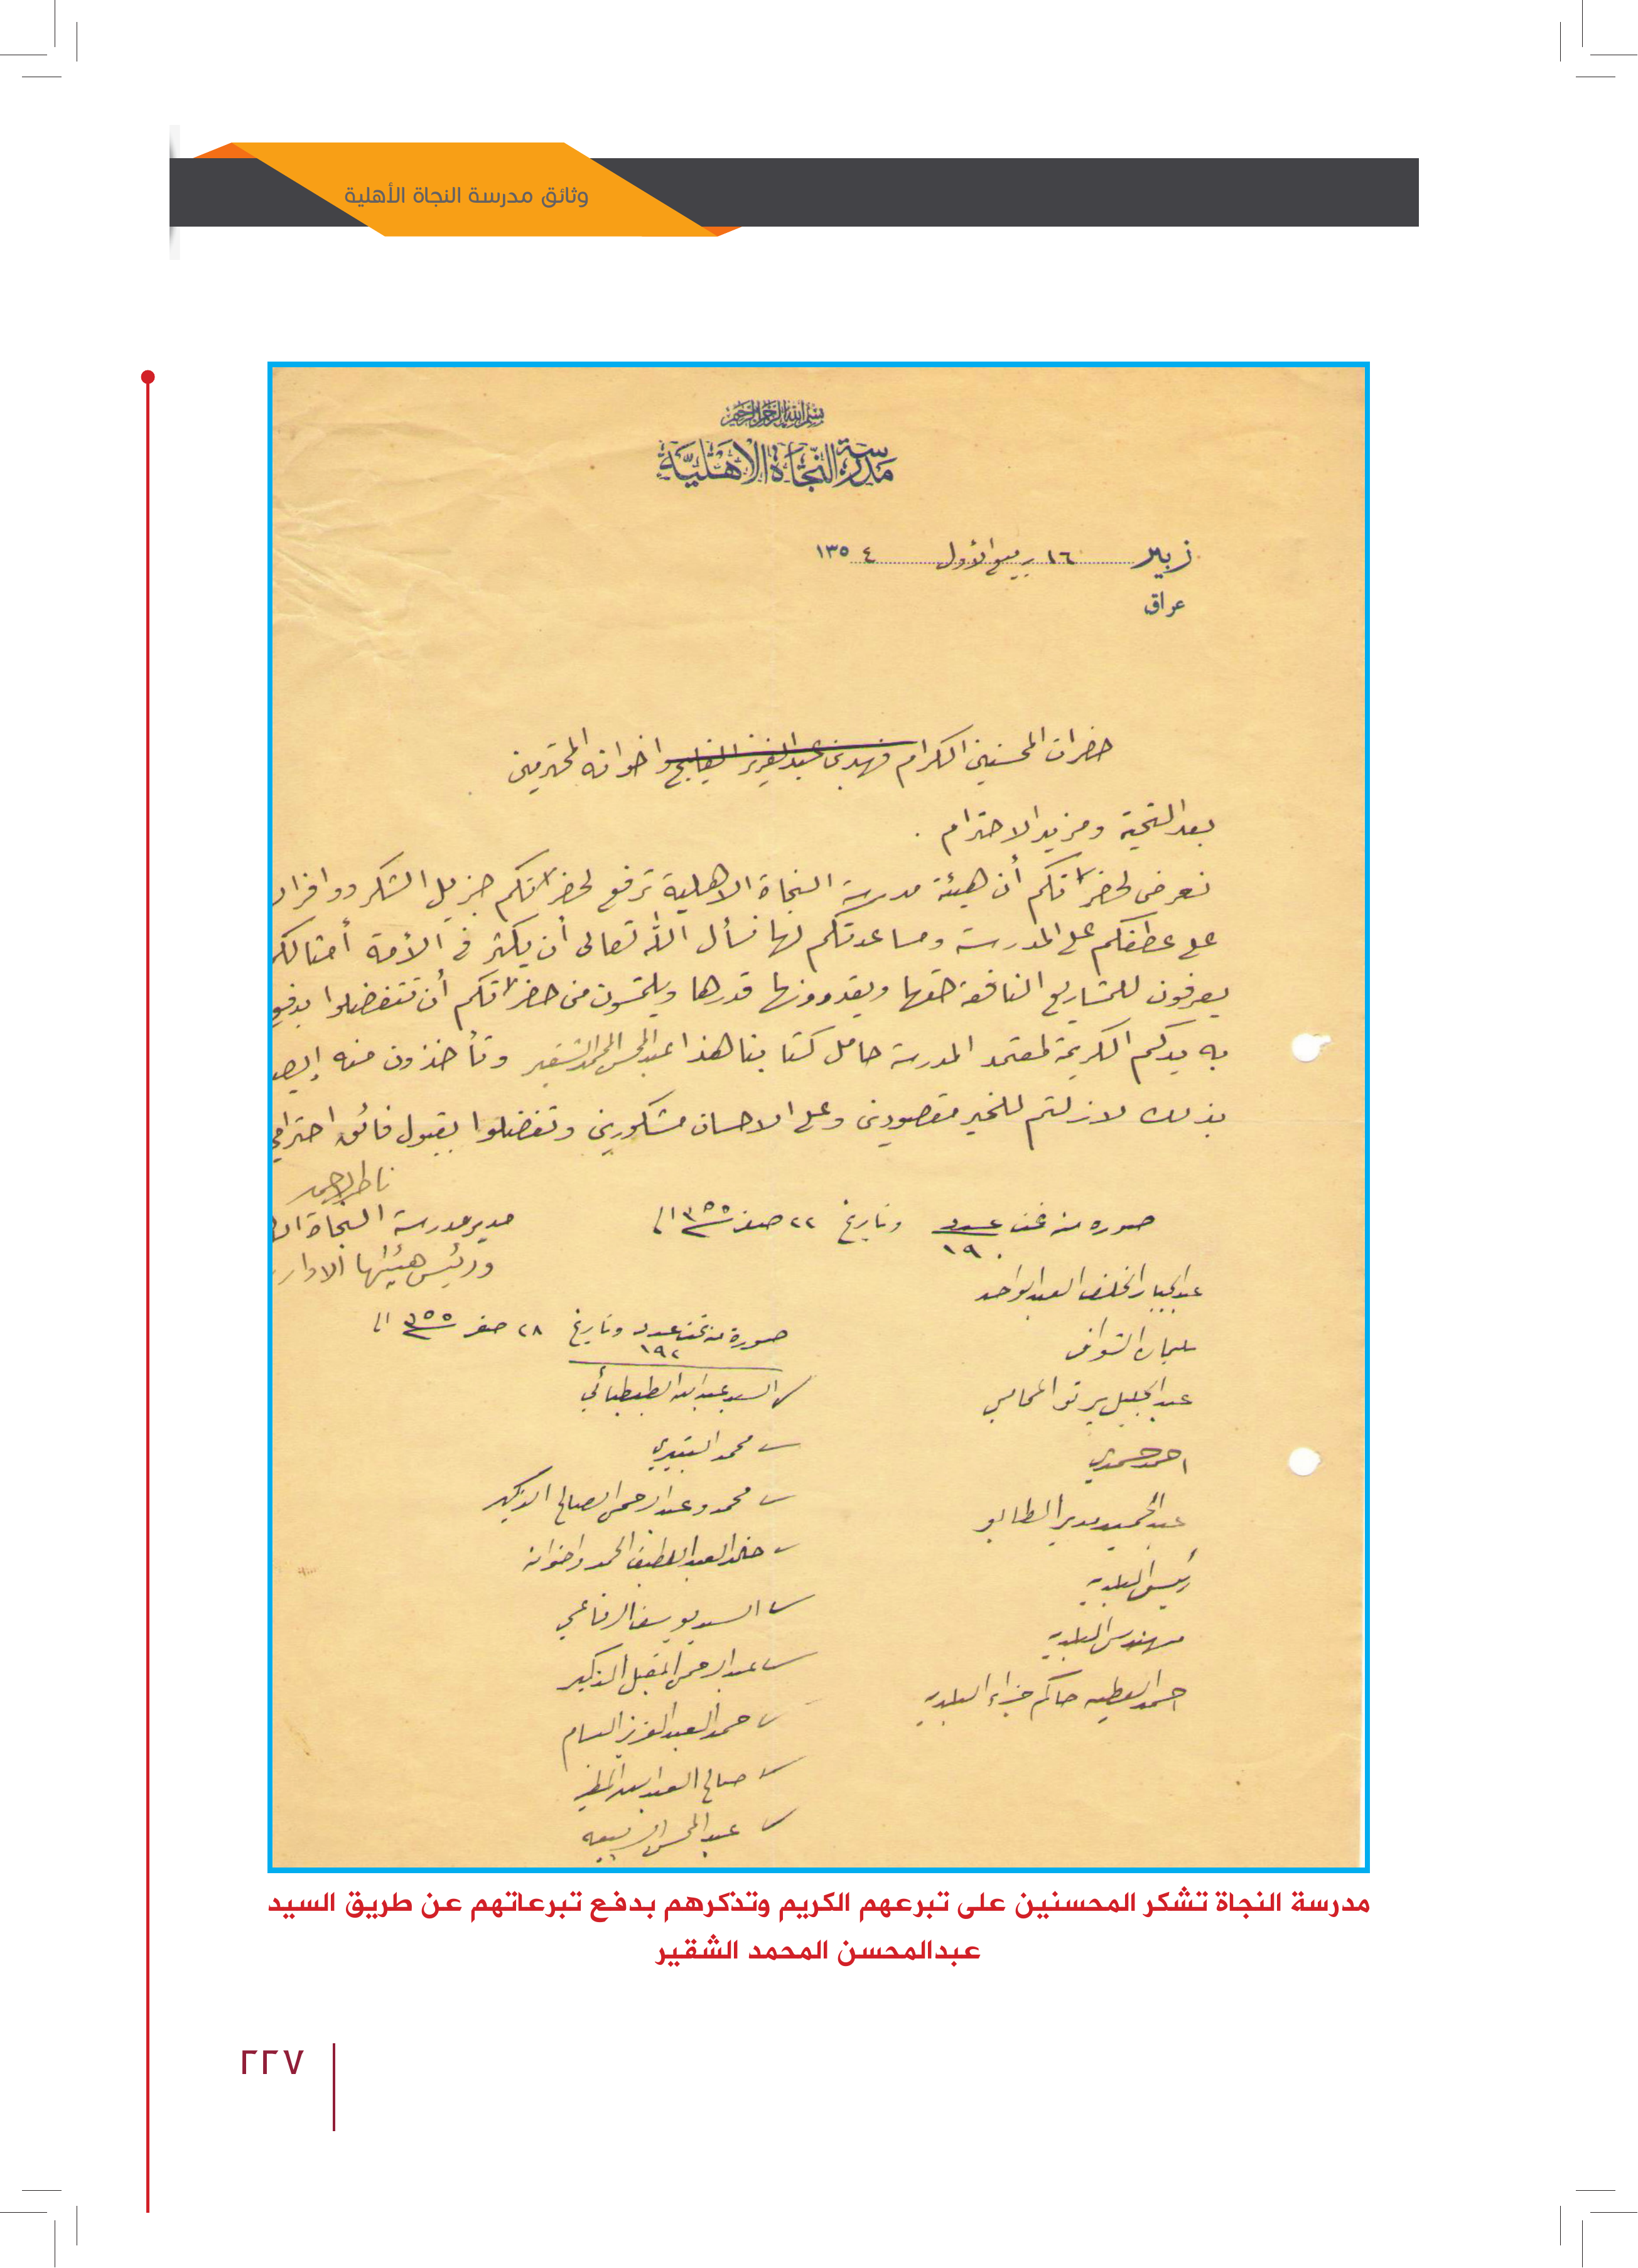 وثائق مدرسة النجاة الأهلية
بسم الله الرحمن الرحيم
مدرسة النجاة الأهلية
زبير ١٦ ربيع الأول ١٣٥٤
عراق
حضرات المحسنين الكرام فهد بن عبد العزيز الفليج واخوانه المحترمين
بعد التحية ومزيد الاحترام .
نعرض لحضراتكم أن هيئة مدرسة النجاة الاهلية ترفع لحضراتكم جزيل الشكر ووافر
على عطفكم على المدرسة ومساعدتكم لها نسأل الله تعالى أن يكثر في الأمة أمثالك
يعرفون للمشاريع النافعة حقها ويقدرونها قدرها ويلتمسون من حضراتكم أن تتفضلوا بدفع
به يدكم الكريمة لمعتمد المدرسة حامل كتابنا هذا عبد المحسن المحمد الشقير وتأخذون منه إيص
بذلك لازلتم للخير مقصودين وعلى الاحسان مشكورين وتفضلوا بقبول فائق احترامي
مدير مدرسة النجاة ال
ورئيس هيئتها الادار
صوره منه تحت عدد ١٩٠ وتاريخ ٢٢ صفر ١٣٥٥ الى
عبد الجبار الخلف العبد الواحد
سليمان الشواف
عبد الجليل برتو المحامي
احمد حمدي
عبد الحميد مدير الطابو
رئيس البلديه
مهندس البلديه
احمد العطيه حاكم جزاء البلديه
صورة منه تحت عدد ١٩٢ وتاريخ ٢٨ صفر ١٣٥٥ الى
السيد عبد الله الطبطبائي
محمد
محمد وعبد الرحمن الصالح الذكير
خالد العبد اللطيف الحمد واخوانه
السيد يوسف الرفاعي
عبد الرحمن المقبل الذكير
حمد العبد العزيز البسام
صالح العبد الله
عبد المحسن
مدرسة النجاة تشكر المحسنين على تبرعهم الكريم وتذكرهم بدفع تبرعاتهم عن طريق السيد
عبدالمحسن المحمد الشقير
٢٢٧